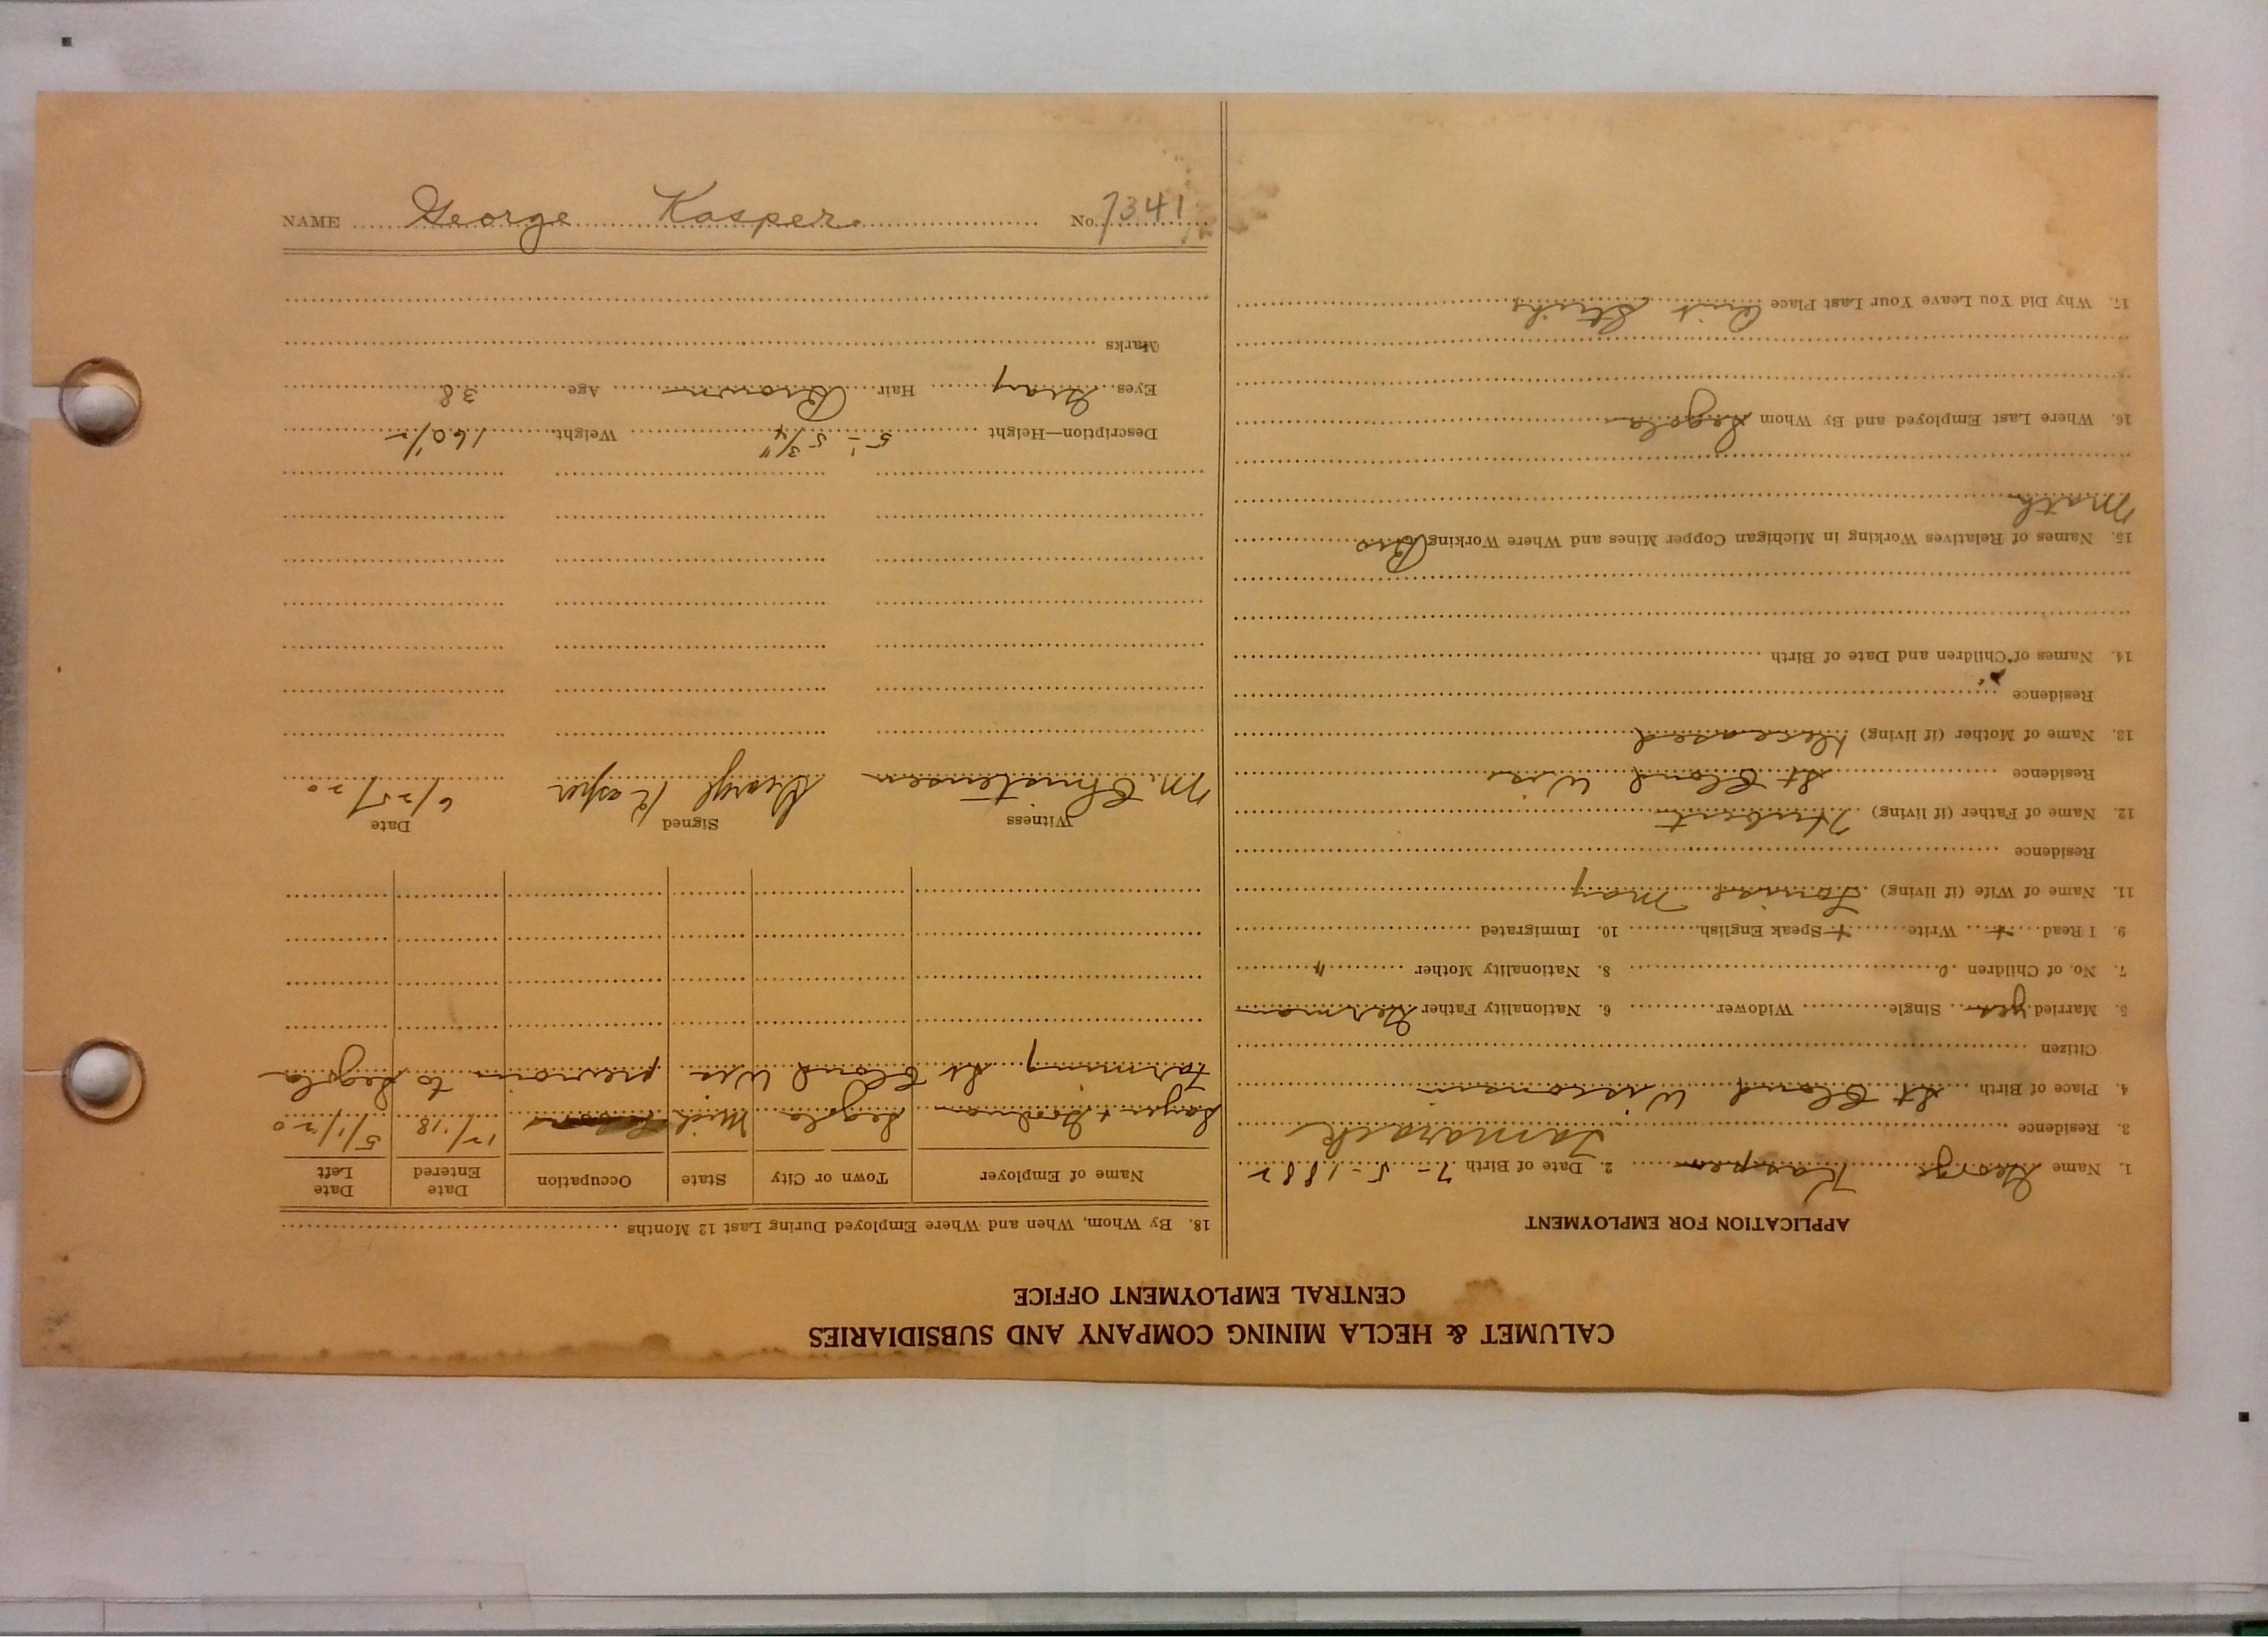 CALUMET & HECLA MINING COMPANY AND SUBSIDIARIES
CENTRAL EMPLOYMENT OFFICE
APPLICATION FOR EMPLOYMENT
1. Name George Kasper 2. Date of Birth 7-5-1882
3. Residence Tamarack
4. Place of Birth St Cloud Wisconsin
Citizen
5. Married yes Single Widower 6. Nationality Father German
7. No. of Children 0 8. Nationality Mother "
9. I Read + Write + Speak English 10. Immigrated
11. Name of Wife (if living) Louise May
Residence
12. Name of Father (if living) Hubert
Residence St Cloud Wis
13. Name of Mother (if living) Deceased
Residence
14. Names of Children and Date of Birth
15. Names of Relatives Working in Michigan Copper Mines and Where Working Bro
Math
16. Where Last Employed and By Whom Sagola
17. Why Did You Leave Your Last Place Quit Strike
18. By Whom, When and Where Employed During Last 12 Months
Name of Employer Town or City State Occupation Date Entered Date Left
Sagola Mich 12/'18 5/1/20
Farming St Cloud Wis previous to Sagola
Witness Signed Date
M. Christensen George Kasper 6/25/20
Description—Height 5'-5 3/4" Weight 160 1/2
Eyes Gray Hair Brown Age 38
Marks
NAME George Kasper No. 7341